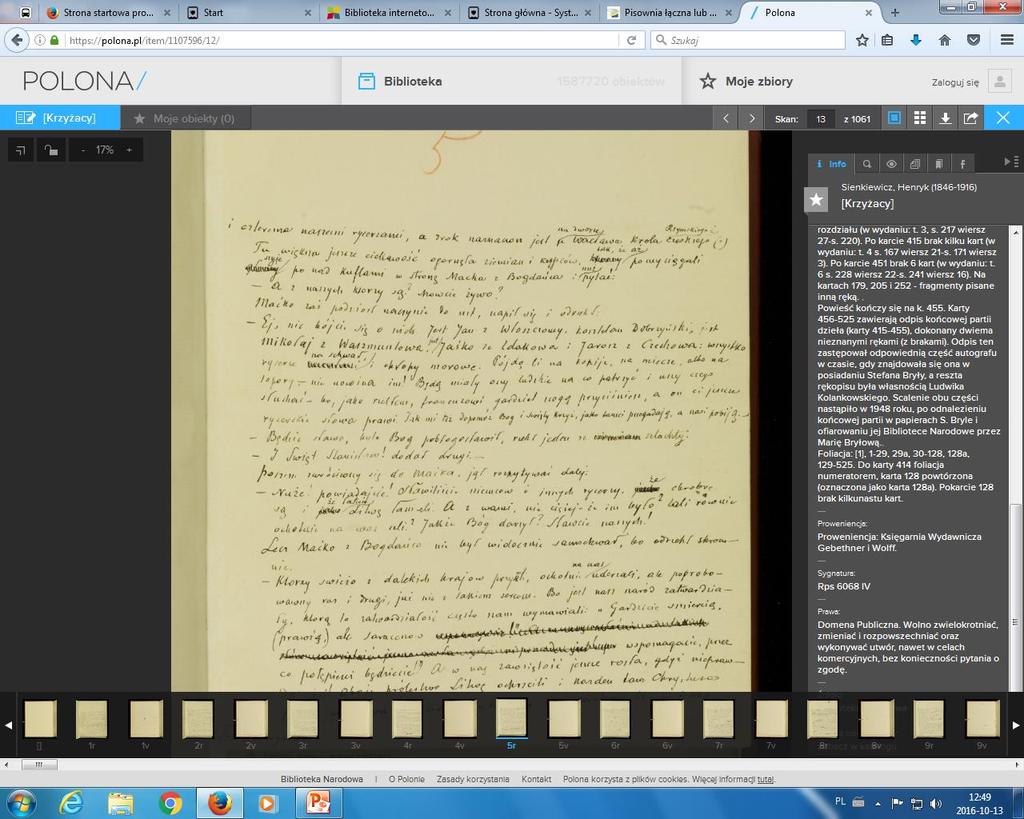 Strona startowa pro...
Start
Biblioteka interneto...
Strona główna - Syst...
Pisownia łączna lub ...
Polona
https://polona.pl/item/1107596/12/
Szukaj
POLONA/
Biblioteka
1587720 obiektów
Moje zbiory
Zaloguj się
[Krzyżacy]
Moje obiekty (0)
Skan: 13 z 1061
- 17% +
5
i czterema naszemi rycerzami, a zrok naznaczon jest na dworze Wacława króla czeskiego
Tu większa jeszcze ciekawość opanuje ziemian i kupców,
po nad kuflami w stronę Maćka z Bogdańca i pytać:
— A z naszych ktorzy są? Mowcie żywo?
Maćko zaś podniósł naczynie do ust, napił się i odrzekł:
— Ej, nie bójcie się o nich. Jest Jan z Włoszczowy, kasztelan Dobrzyński, jest
Mikołaj z Waszmuntowa, jest Jaśko ze Zdakowa i Jarosz z Czechowa: wszystko
rycerze na schwał i chłopy morowe. Pójdą li na kopije, na miecze, albo na
topory — nie nowina im! Będą miały oczy ludzkie na co patrzeć i uszy czego
słuchać — bo, jako rzekłem, francuzowi gardziel nogą przycisnien, a on ci jeszcze
rycerskie słowa prawi. Tak mi też dopomóż Bog i święty krzyż, jako tamci przegadają, a nasi pobiją.
— Będzie sława, byle Bog pobłogosławił, rzekł jeden ze szlachty.
— I Święt Stanisław! dodał drugi.—
poczem zwróciwszy się do Maćka, jął rozpytywać dalej:
— Nuże! powiadajcie! Sławiliście niemców i innych rycerzy, że chrobre
są i że łatwo Litwę łamali. A z wami, nie ciężej-że im było? Zali równie
ochotnie na was szli? Jakże Bóg darzył? Sławcie naszych!
Lecz Maćko z Bogdańca nie był widocznie samochwał, bo odrzekł skrom-
nie.
— Ktorzy swieżo z dalekich krajow przyszli, ochotnie na nas uderzali, ale poprobo-
wawszy raz i drugi, już nie z takiem sercem. Bo jest nasz naród zatwardzia-
ły, którą to zatwardziałość często nam wymawiali: „Gardzicie śmiercią,
(prawią) ale Saracenow wspomagacie, przez
co potępieni będziecie!” A w nas zawziętość jeszcze rosła, gdyż niepraw-
Info
Sienkiewicz, Henryk (1846-1916)
[Krzyżacy]
rozdziału (w wydaniu: t. 3, s. 217 wiersz
27-s. 220). Po karcie 415 brak kilku kart (w
wydaniu: t. 4 s. 167 wiersz 21-s. 171 wiersz
3). Po karcie 451 brak 6 kart (w wydaniu: t.
6 s. 228 wiersz 22-s. 241 wiersz 16). Na
kartach 179, 205 i 252 - fragmenty pisane
inną ręką. .
Powieść kończy się na k. 455. Karty
456-525 zawierają odpis końcowej partii
dzieła (karty 415-455), dokonany dwiema
nieznanymi rękami (z brakami). Odpis ten
zastępował odpowiednią część autografu
w czasie, gdy znajdowała się ona w
posiadaniu Stefana Bryły, a reszta
rękopisu była własnością Ludwika
Kolankowskiego. Scalenie obu części
nastąpiło w 1948 roku, po odnalezieniu
końcowej partii w papierach S. Bryle i
ofiarowaniu jej Bibliotece Narodowe przez
Marię Bryłową..
Foliacja: [1], 1-29, 29a, 30-128, 128a,
129-525. Do karty 414 foliacja
numeratorem, karta 128 powtórzona
(oznaczona jako karta 128a). Pokarcie 128
brak kilkunastu kart.
Proweniencja:
Proweniencja: Księgarnia Wydawnicza
Gebethner i Wolff.
Sygnatura:
Rps 6068 IV
Prawa:
Domena Publiczna. Wolno zwielokrotniać,
zmieniać i rozpowszechniać oraz
wykonywać utwór, nawet w celach
komercyjnych, bez konieczności pytania o
zgodę.
[] 1r 1v 2r 2v 3r 3v 4r 4v 5r 5v 6r 6v 7r 7v 8r 8v 9r 9v
Biblioteka Narodowa | O Polonie Zasady korzystania Kontakt Polona korzysta z plików cookies. Więcej informacji tutaj.
PL
12:49
2016-10-13